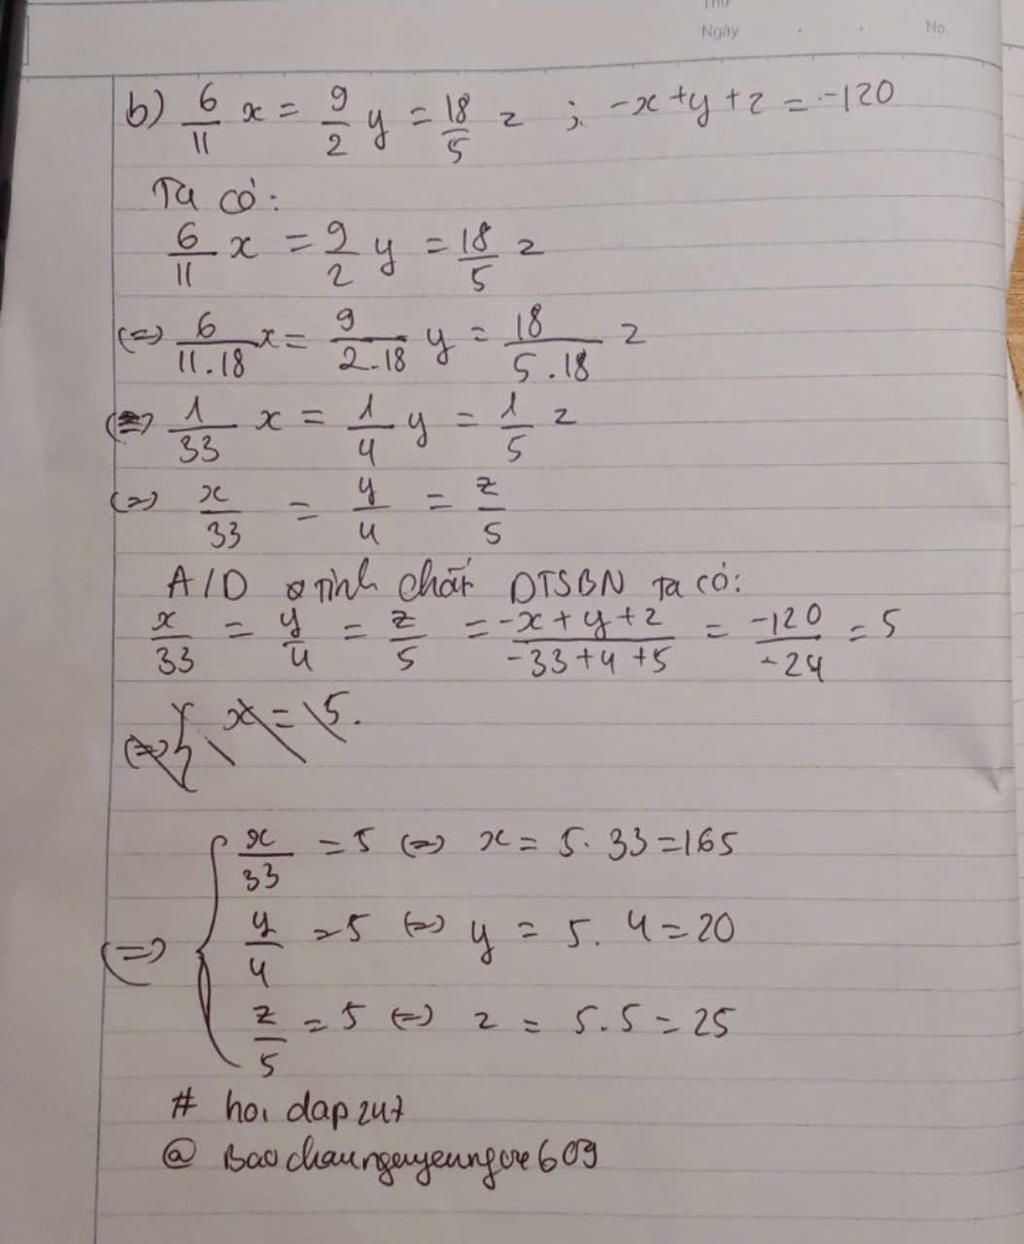 Thứ
Ngày No.
b) 6/11 x = 9/2 y = 18/5 z ; -x+y+z = -120
Ta có:
6/11 x = 9/2 y = 18/5 z
(=) 6/11.18 x = 9/2.18 y = 18/5.18 z
(=) 1/33 x = 1/4 y = 1/5 z
(=) x/33 = y/4 = z/5
A/D tính chất DTSBN ta có:
x/33 = y/4 = z/5 = -x+y+z/-33+4+5 = -120/-24 = 5
(=) { x = 5.
x/33 = 5 (=) x = 5.33=165
(=) { y/4 = 5 (=) y = 5.4=20
z/5 = 5 (=) z = 5.5=25
# hoi dap 247